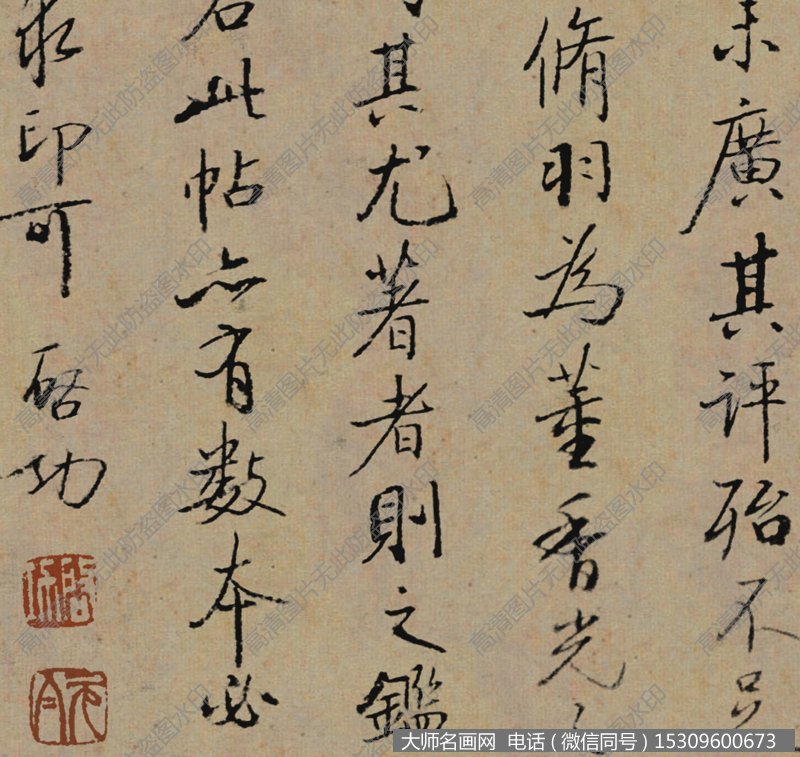 未廣其評殆不
脩羽為董香光之
其尤著者則之鑑
此帖亦有數本必
求印可 启功
启功
元白
高清图片无此防盗图水印
大师名画网 电话（微信同号）15309600673